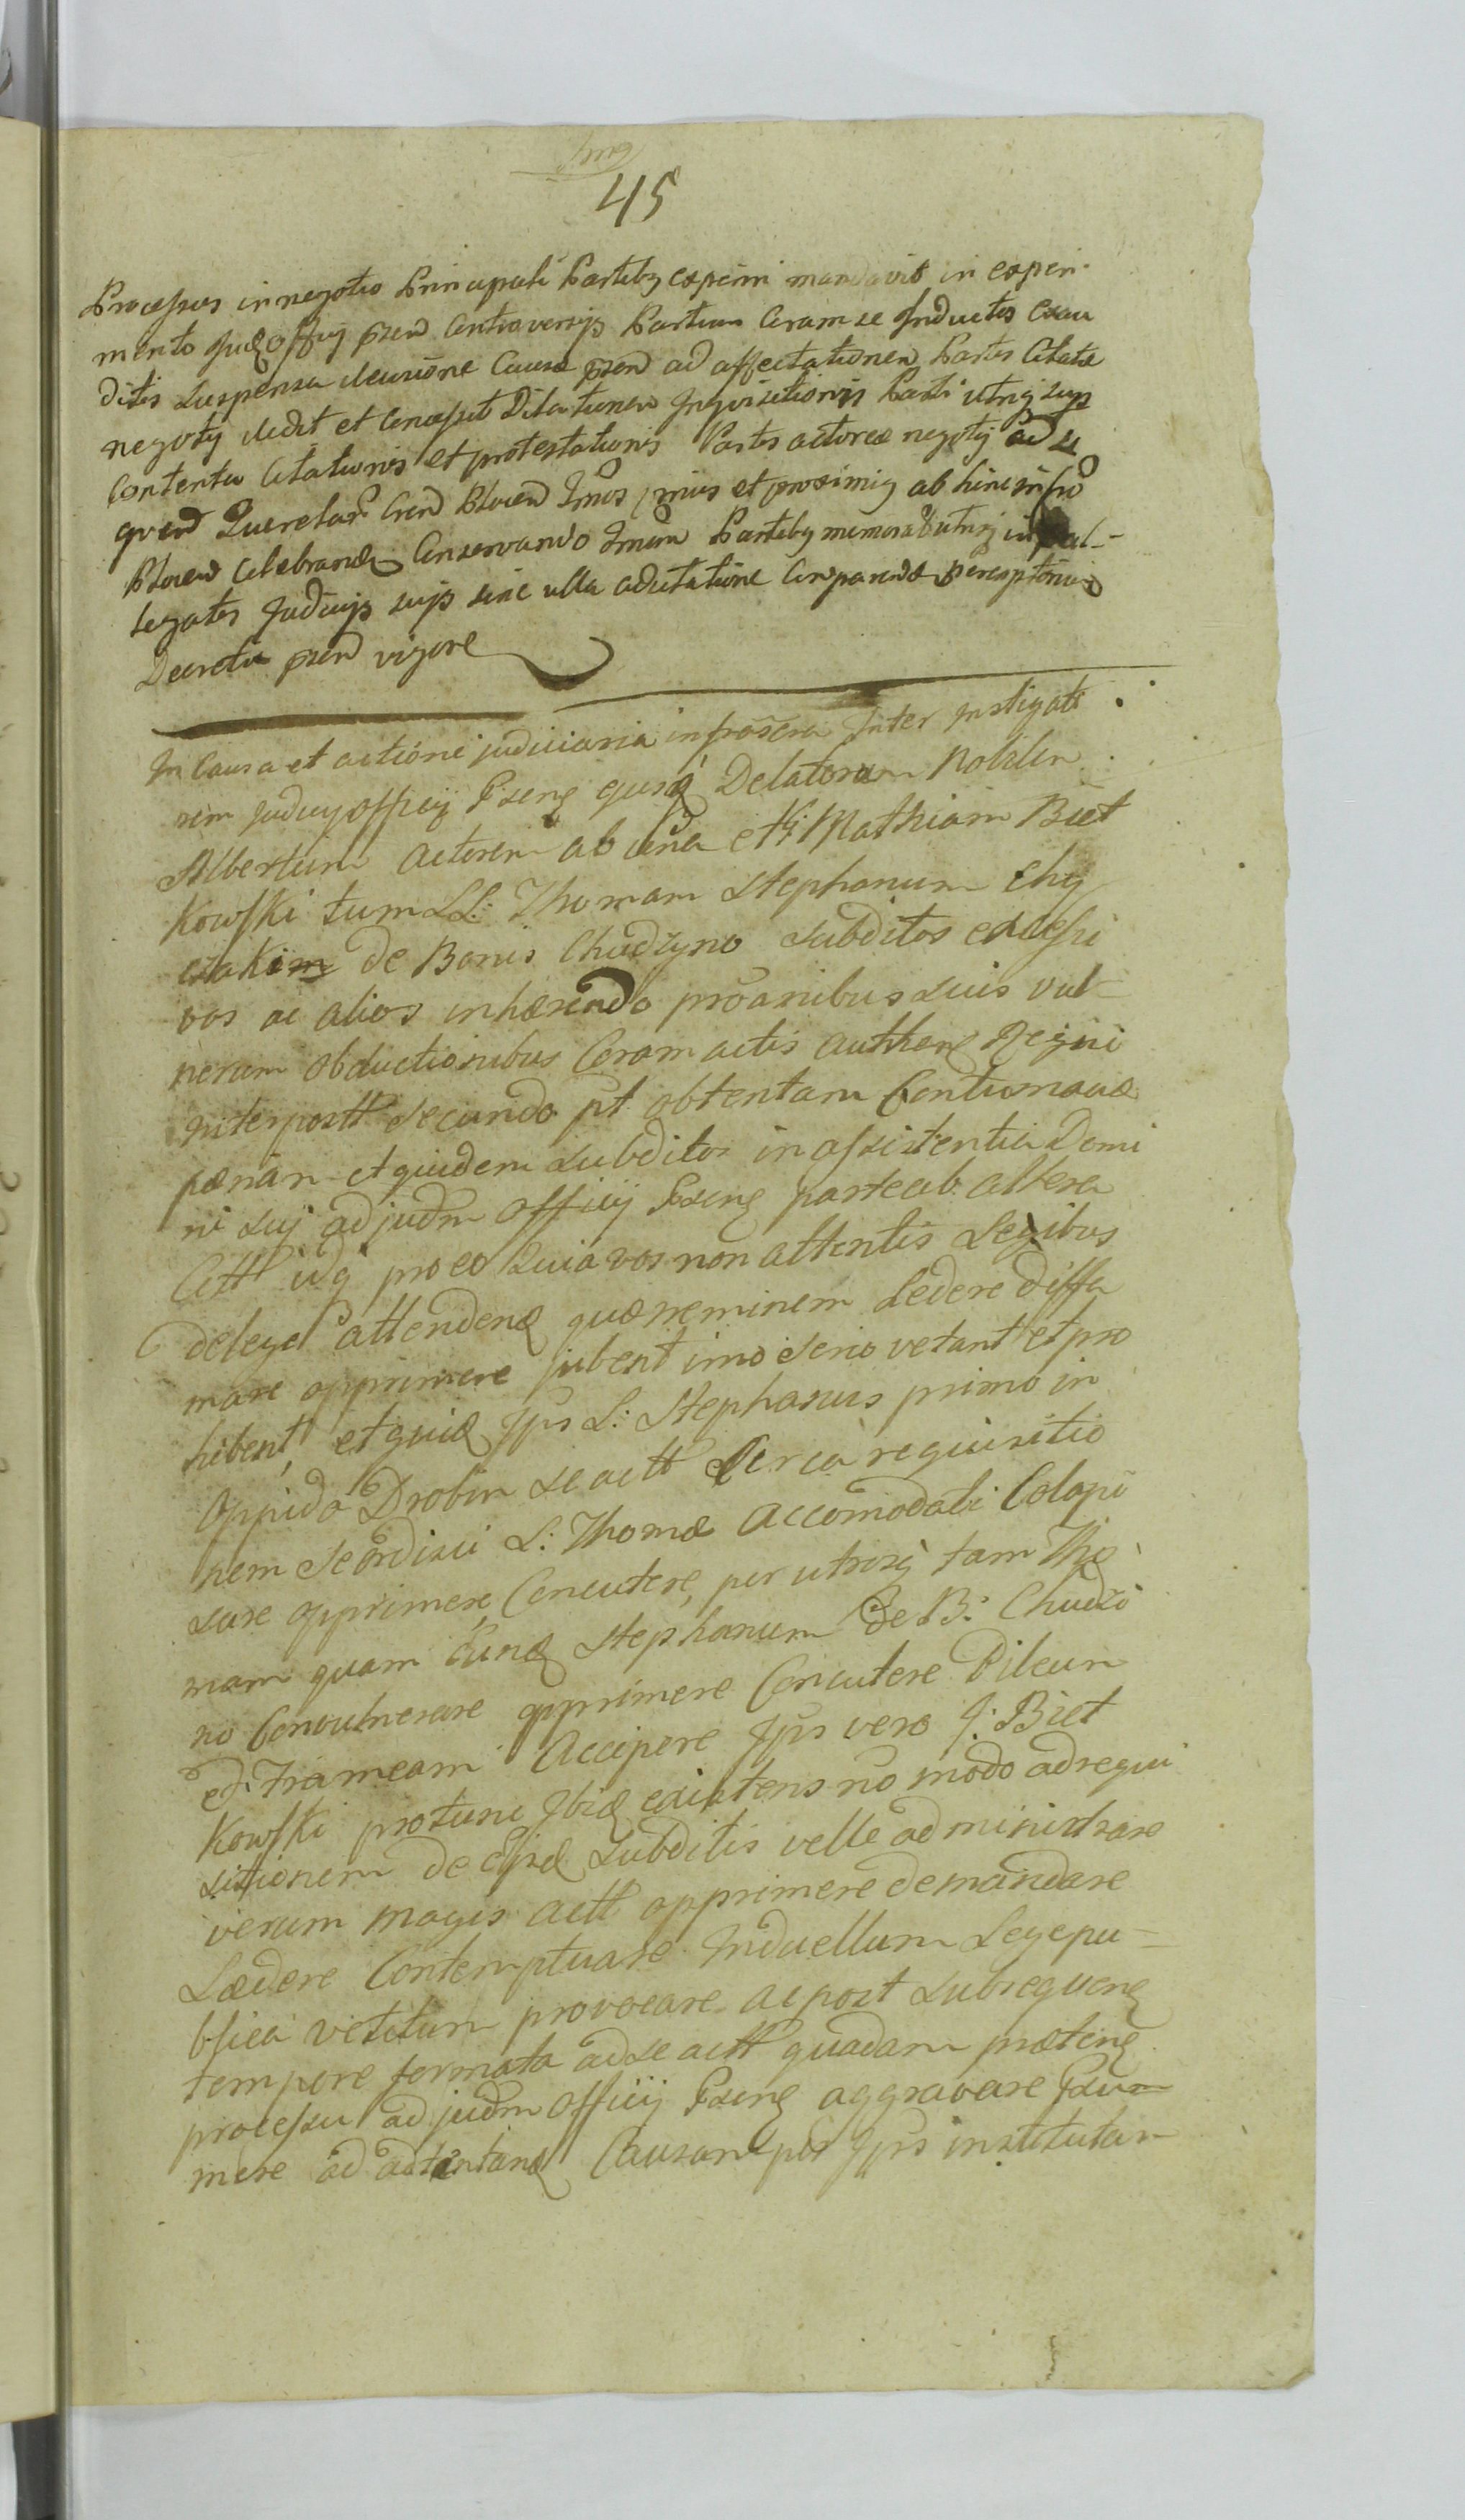 45
Processus in negotio Principali Partibq experiri mandavit in experi
mento Judq Offij pzend Controversijs Partium Coram se Inductis exau
ditis suspensa decisione Causae pzend ad affectationem Partis Citatae
negotij dedit et Concessit Dilationem Inquisitionis Parti utriq sup
Contenta Citationis et protestationis Partis actoreae negotij ad
querel Cren Plocen Tmos et proximis ab hinc
Plocen Celebrand Conservando Tmum Partibq memorat utriq in
legatis Judicijs suis sine ulla adcitatione Comparendi peremptorium
Decreti pzend vigore
In Causa et actione judiciaria infrascra Inter Instigato
rem Judicij Officij Pzenq ejusq Delatorem Nobilem
Albertum Actorem ab una et G: Mathiam Biet
kowski tum LL: Thomam Stephanum
de Bonis Chudzyno Subditos excessi
vos ac alios inhaerendo proanibus suis vul-
nerum obductionibus Coram actis Authenq Regni
interpostt Secundo pt obtentam Contumaciae
paenam et quidem subditos in assistentia Domi
ni sui ad judm Officij Pzenq parte ab altera
Citt idq pro eo Quia vos non attentis Legibus
de lege attendend quae neminem Ledere diffa
mare opprimere jubent imo Serio vetant et pro
hibent, et quia Ips L: Stephanus primo in
Oppido Drobin se actt Circa requisitio
nem L: Thomae Accomodati Colapi
sare opprimere, Concutere, per utrosq tam Tho
mam quam Eund Stephanum de B: Chudzi
no Convulnerare opprimere Concutere Pileum
et Frameam Accipere Ips vero G: Biet
kowski protunc Ibid existens no modo ad requi
sitionem de Ejsd Subditis velle administrare
verum magis actt opprimere demandare
Laedere Contemptuare Induellum Lege pu-
blica vetitum provocare ac post subsequenq
tempore formato ad se actt quodam praetenq
processu ad judm Officij Pzenq aggravare
mere ad Causam per Ips institutam